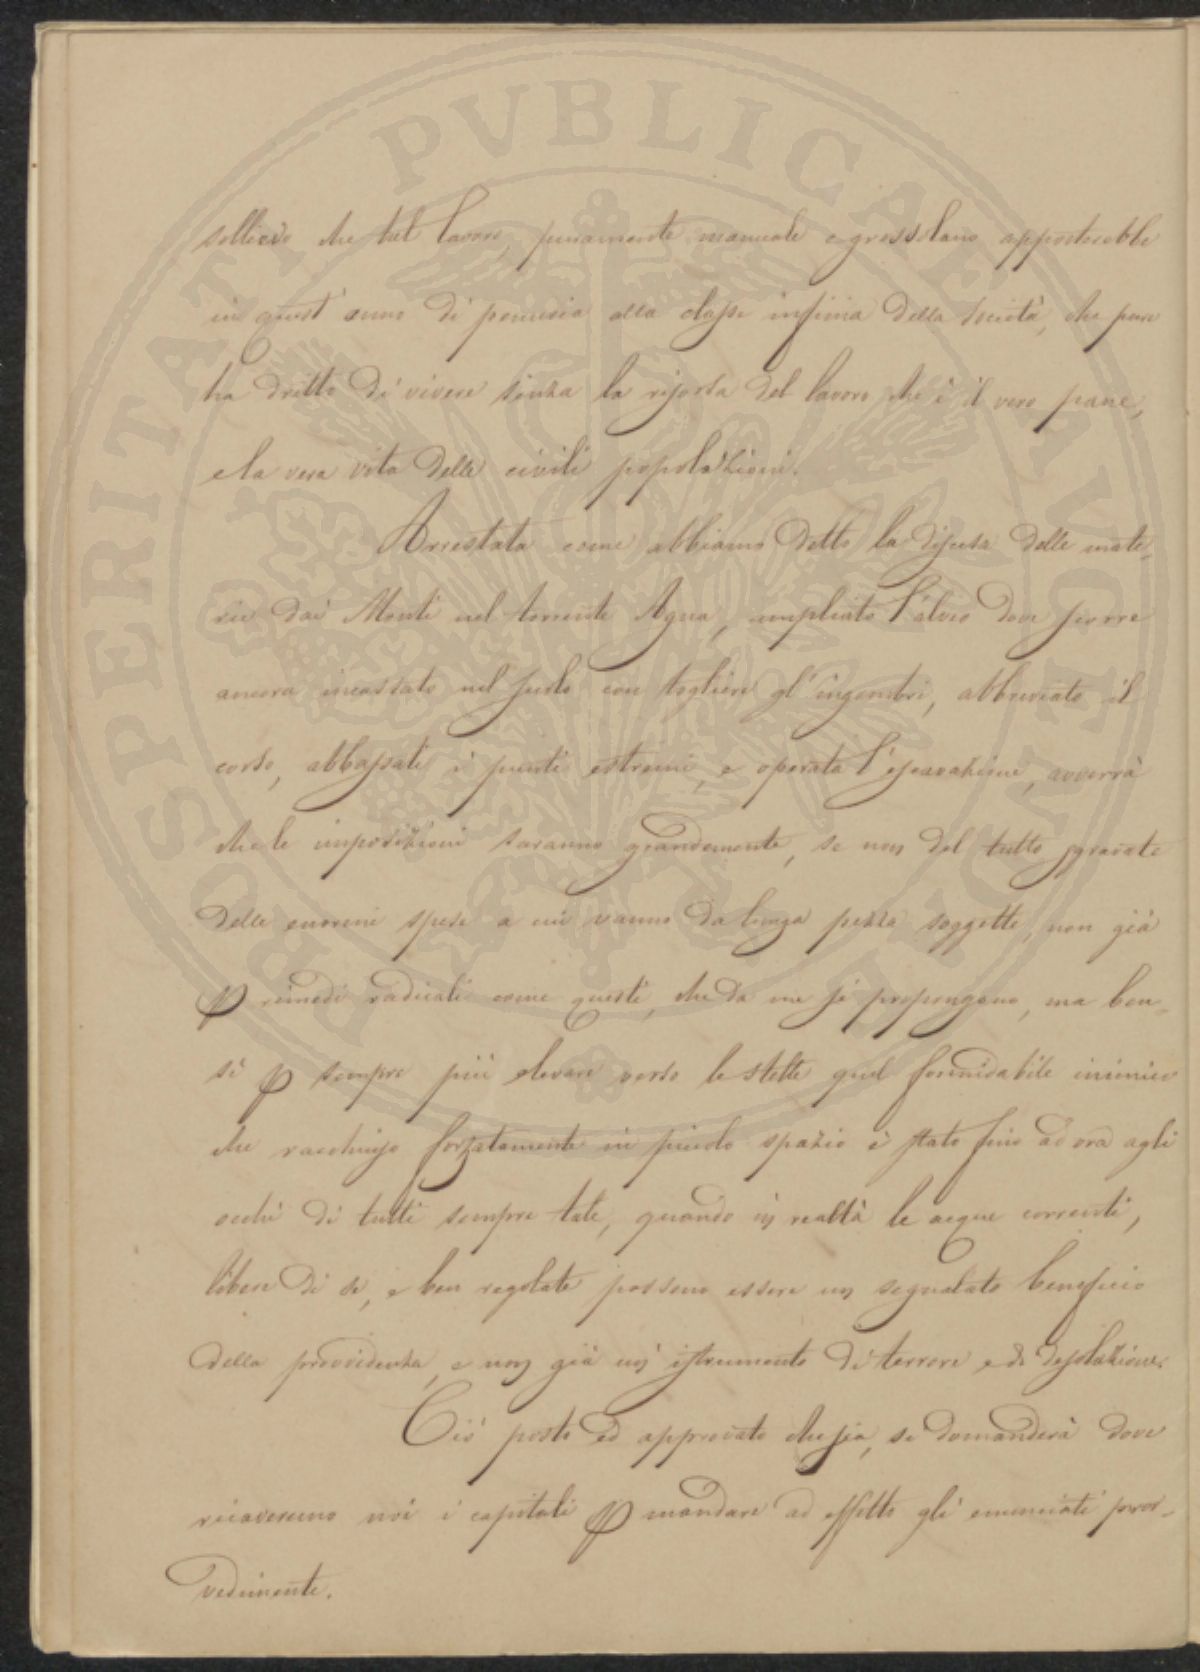 sollievo che tal lavoro, puramente manuale e grossolano apporterebbe
in quest'anno di penuria alla classe infima della Società, che pure
ha dritto di vivere senza la risorsa del lavoro che è il vero pane,
e la vera vita delle civili popolazioni.
Arrestata come abbiamo detto la discesa delle mate-
rie dai Monti nel torrente Agna, ampliato l'alveo dove scorre
ancora incassato nel suolo con togliere gl'ingombri, abbreviato il
corso, abbassati i punti estremi, e operata l'escavazione, avverrà
che le imposizioni saranno grandemente, se non del tutto sgravate
delle enormi spese a cui vanno da lunga pezza soggette, non già
p rimedi radicali come questi, che da me si propongono, ma ben-
sì p sempre più elevare verso le stelle quel formidabile inimico
che racchiuso forzatamente in piccolo spazio è stato fino ad ora agli
occhi di tutti sempre tale, quando in realtà le acque correnti,
libere di sé, e ben regolate possono essere un segnalato beneficio
della provvidenza, e non già un istrumento di terrore e di desolazione.
Ciò posto ed approvato che sia, si domanderà dove
ricaveremo noi i capitali p mandare ad effetto gli enunciati prov-
vedimenti.
PROSPERITATI PVBLICAE AVGENDAE